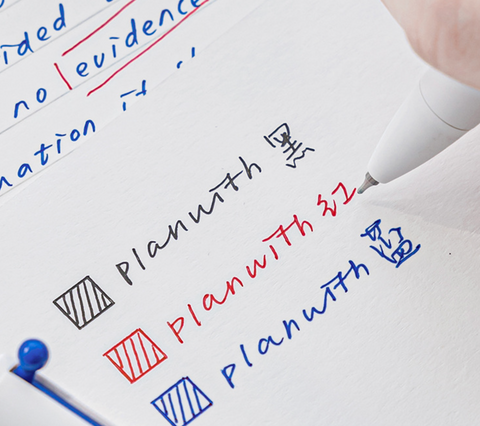 ided
no evidence
nation it
planwith 黑
planwith 红
planwith 蓝